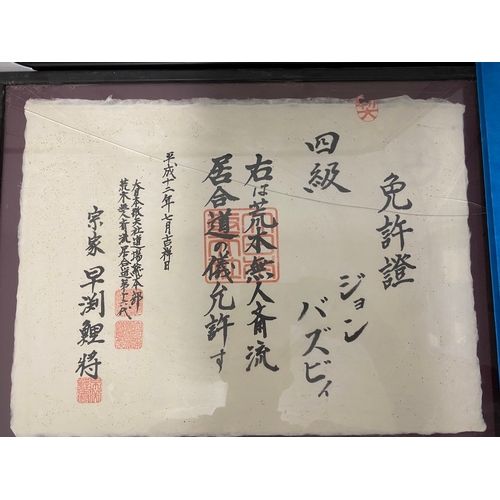 免許證
ジョン
バズビィ
四級
右は荒木無人斉流
居合道の儀允許す
平成十二年七月吉祥日
大日本根矢社道場総本部
荒木無人斉流居合道第十六代
宗家 早渕鯉将